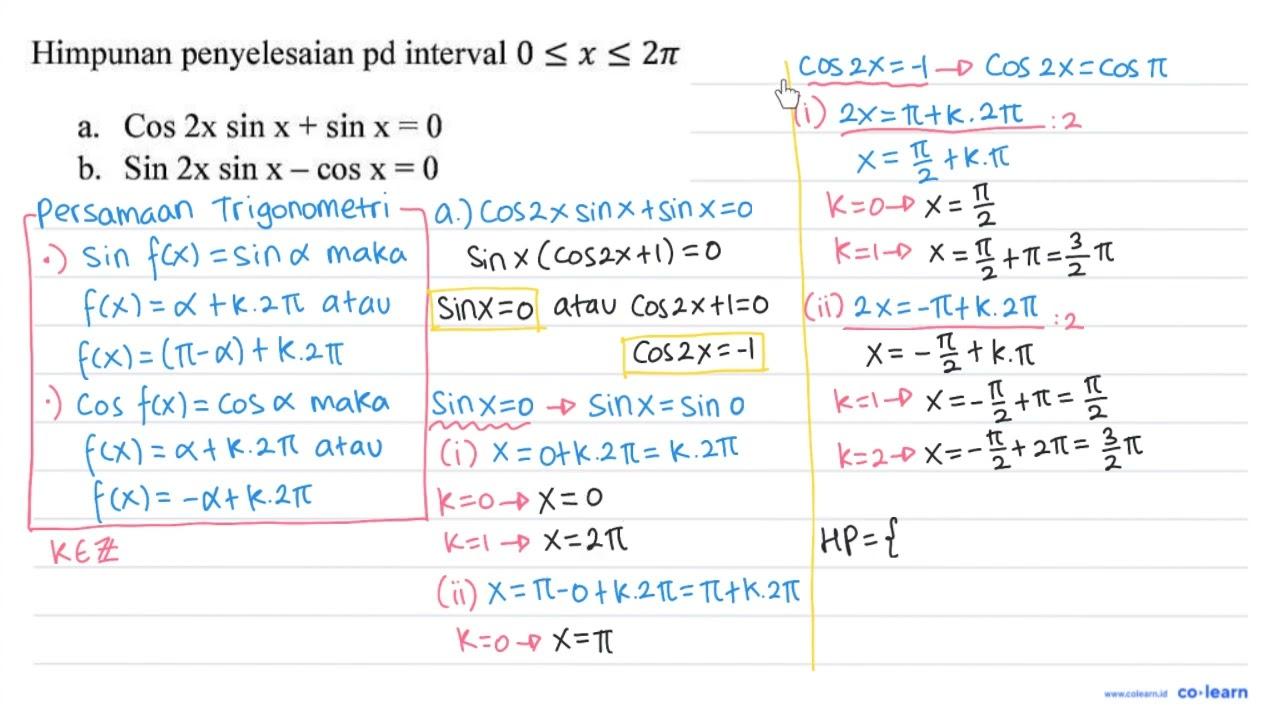 Himpunan penyelesaian pd interval 0 ≤ x ≤ 2π
a. Cos 2x sin x + sin x = 0
b. Sin 2x sin x – cos x = 0
Persamaan Trigonometri
•) sin f(x) = sin α maka
f(x) = α + k.2π atau
f(x) = (π-α) + k.2π
•) cos f(x) = cos α maka
f(x) = α + k.2π atau
f(x) = -α + k.2π
K ∈ ℤ
a.) cos2x sinx + sinx = 0
sin x (cos2x+1) = 0
sinx=0 atau cos2x+1=0
cos2x=-1
sinx=0 → sinx = sin 0
(i) x = 0+k.2π = k.2π
k=0 → x=0
k=1 → x=2π
(ii) x = π-0+k.2π = π+k.2π
k=0 → x=π
cos2x=-1 → cos2x=cos π
(i) 2x=π+k.2π :2
x = π/2 + k.π
k=0 → x = π/2
k=1 → x = π/2 + π = 3/2 π
(ii) 2x=-π+k.2π :2
x = -π/2 + k.π
k=1 → x = -π/2 + π = π/2
k=2 → x = -π/2 + 2π = 3/2 π
HP = {
www.colearn.id co•learn